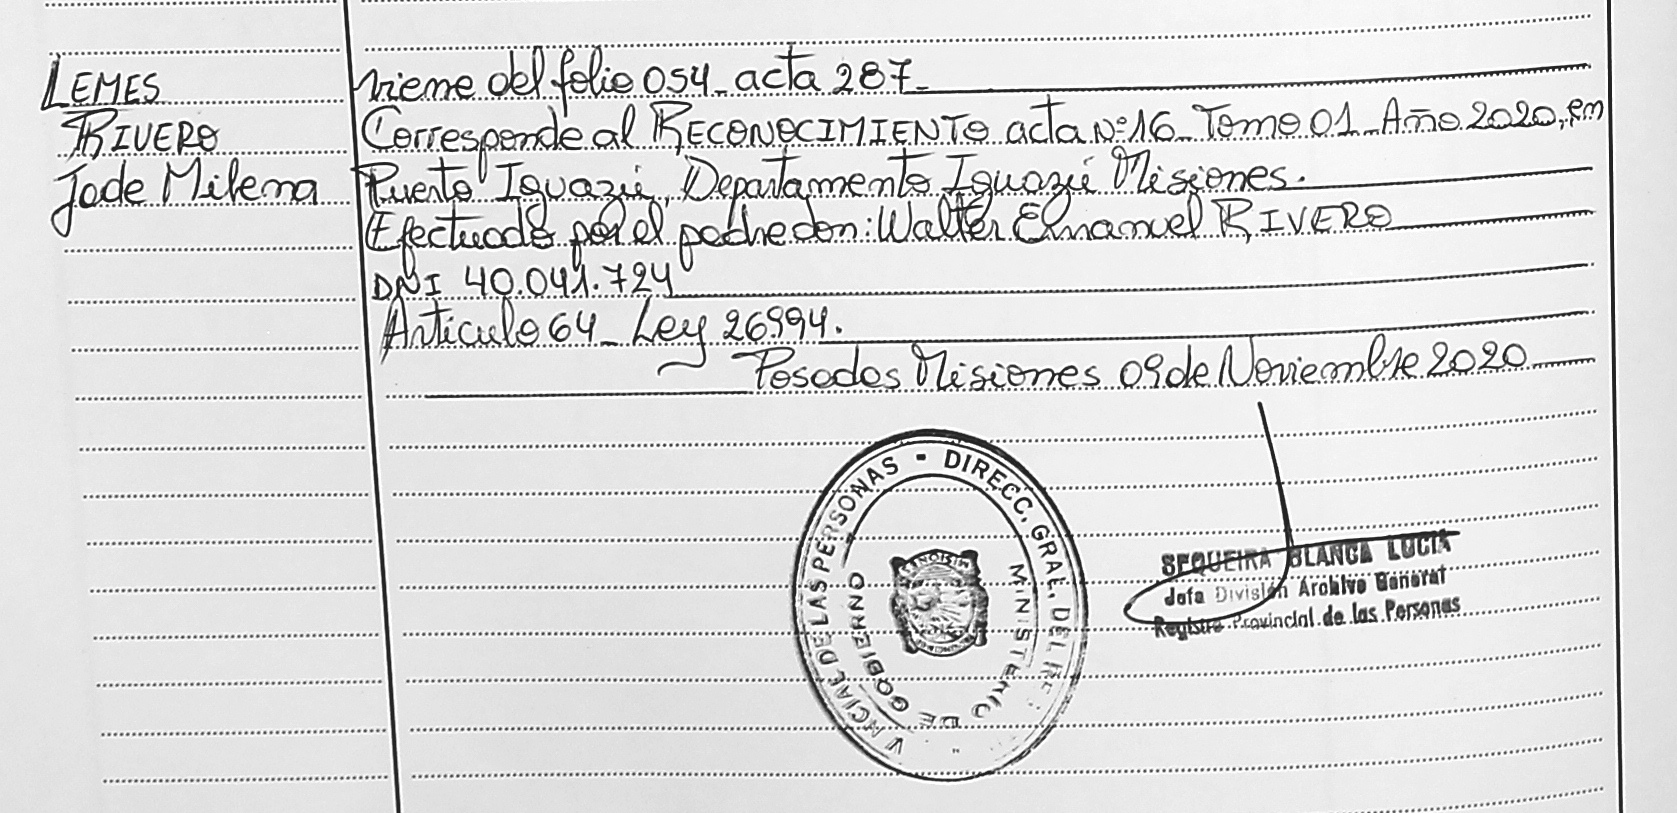 LEMES
RIVERO
Jade Milena
viene del folio 054_ acta 287_
Corresponde al RECONOCIMIENTO acta Nº 16_ Tomo 01_ Año 2020, en
Puerto Iguazú, Departamento Iguazú Misiones.
Efectuado por el padre don: Walter Emanuel RIVERO
DNI 40.041.724
Artículo 64_ Ley 26994.
Posadas Misiones 09 de Noviembre 2020
VINCIAL DE LAS PERSONAS - DIRECC. GRAL. DEL
MINISTERIO DE GOBIERNO
MISIONES
SEQUEIRA BLANCA LUCIA
Jefa División Archivo General
Registro Provincial de las Personas